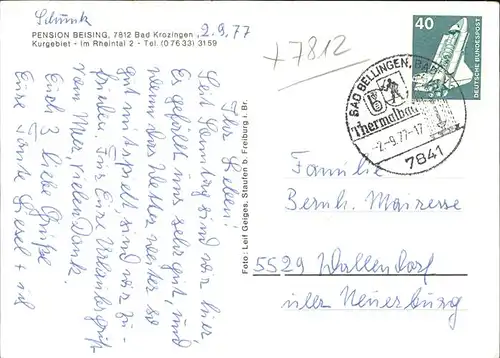 Schunk
2.9.77
PENSION BEISING, 7812 Bad Krozingen
Kurgebiet - Im Rheintal 2 - Tel. (0 76 33) 31 59
Ihr Lieben!
Seit Samstag sind wir hier,
Es gefällt uns sehr gut, und
wenn das Wetter weiter so
gut mitspielt, sind wir zu-
frieden. Für Eure Urlaubsgrüße
vom Meer, vielen Dank.
Euch 3 liebe Grüße
Eure Tante Liesel +
Foto: Leif Geiges, Staufen b. Freiburg i. Br.
+7812
40
DEUTSCHE BUNDESPOST
BAD BELLINGEN, BADEN
Thermalbad
-2.-9.77-17
7841
Familie
Bernh. Maresse
5529 Wallendorf
über Neuerburg